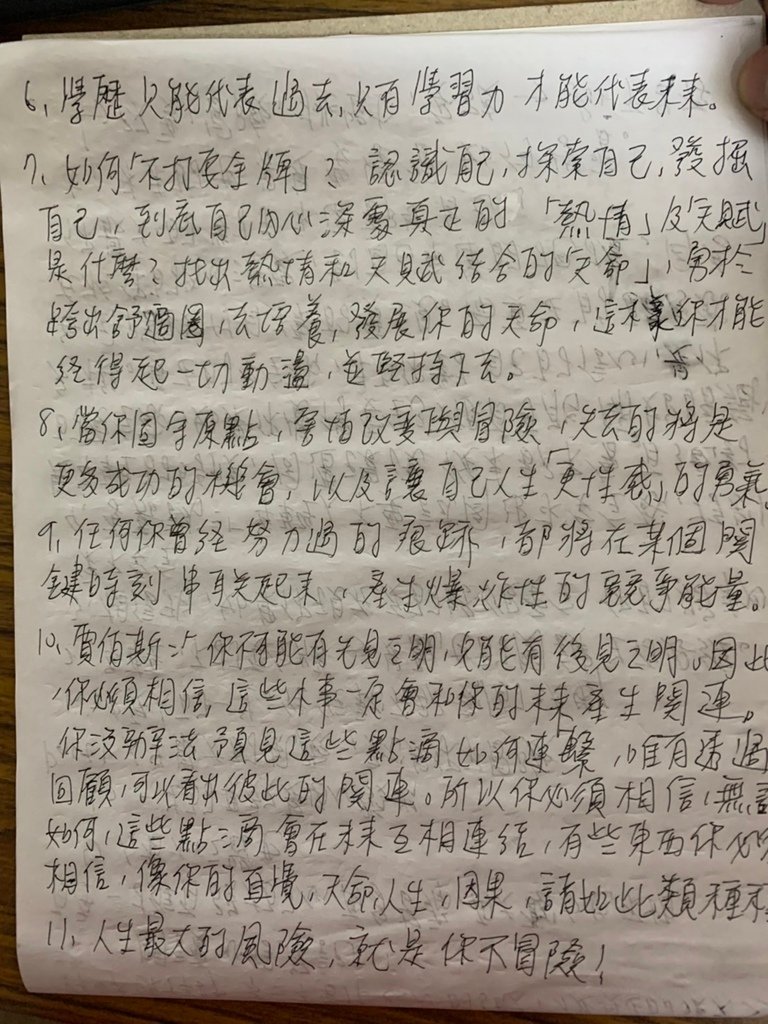 6、學歷只能代表過去,只有學習力才能代表未來。
7、如何「不打安全牌」? 認識自己,探索自己,發掘
自己,到底自己內心深處真正的「熱情」及「天賦」
是什麼?找出熱情和天賦結合的「天命」,勇於
跨出舒適圈,去培養,發展你的天命,這樣你才能
經得起一切動盪,並堅持下去。
8、當你固守原點,害怕改變與冒險,失去的將是
更多成功的機會,以及讓自己人生「更性感」的勇氣。
9、任何你曾經努力過的痕跡,都將在某個関
鍵時刻串联起來,產生爆炸性的競爭能量。
10、賈伯斯:「你不可能有先見之明,只能有後見之明。因此
,你必須相信,這些事一定會和你的未來產生関連。
你沒辦法預見這些點滴如何連繫,唯有透過
回顧,可以看出彼此的関連。所以你必須相信,無論
如何,這些點滴會在未來互相連結,有些東西你必須
相信,像你的直覺,天命,人生,因果,諸如此類種種
11、人生最大的風險,就是你不冒險!